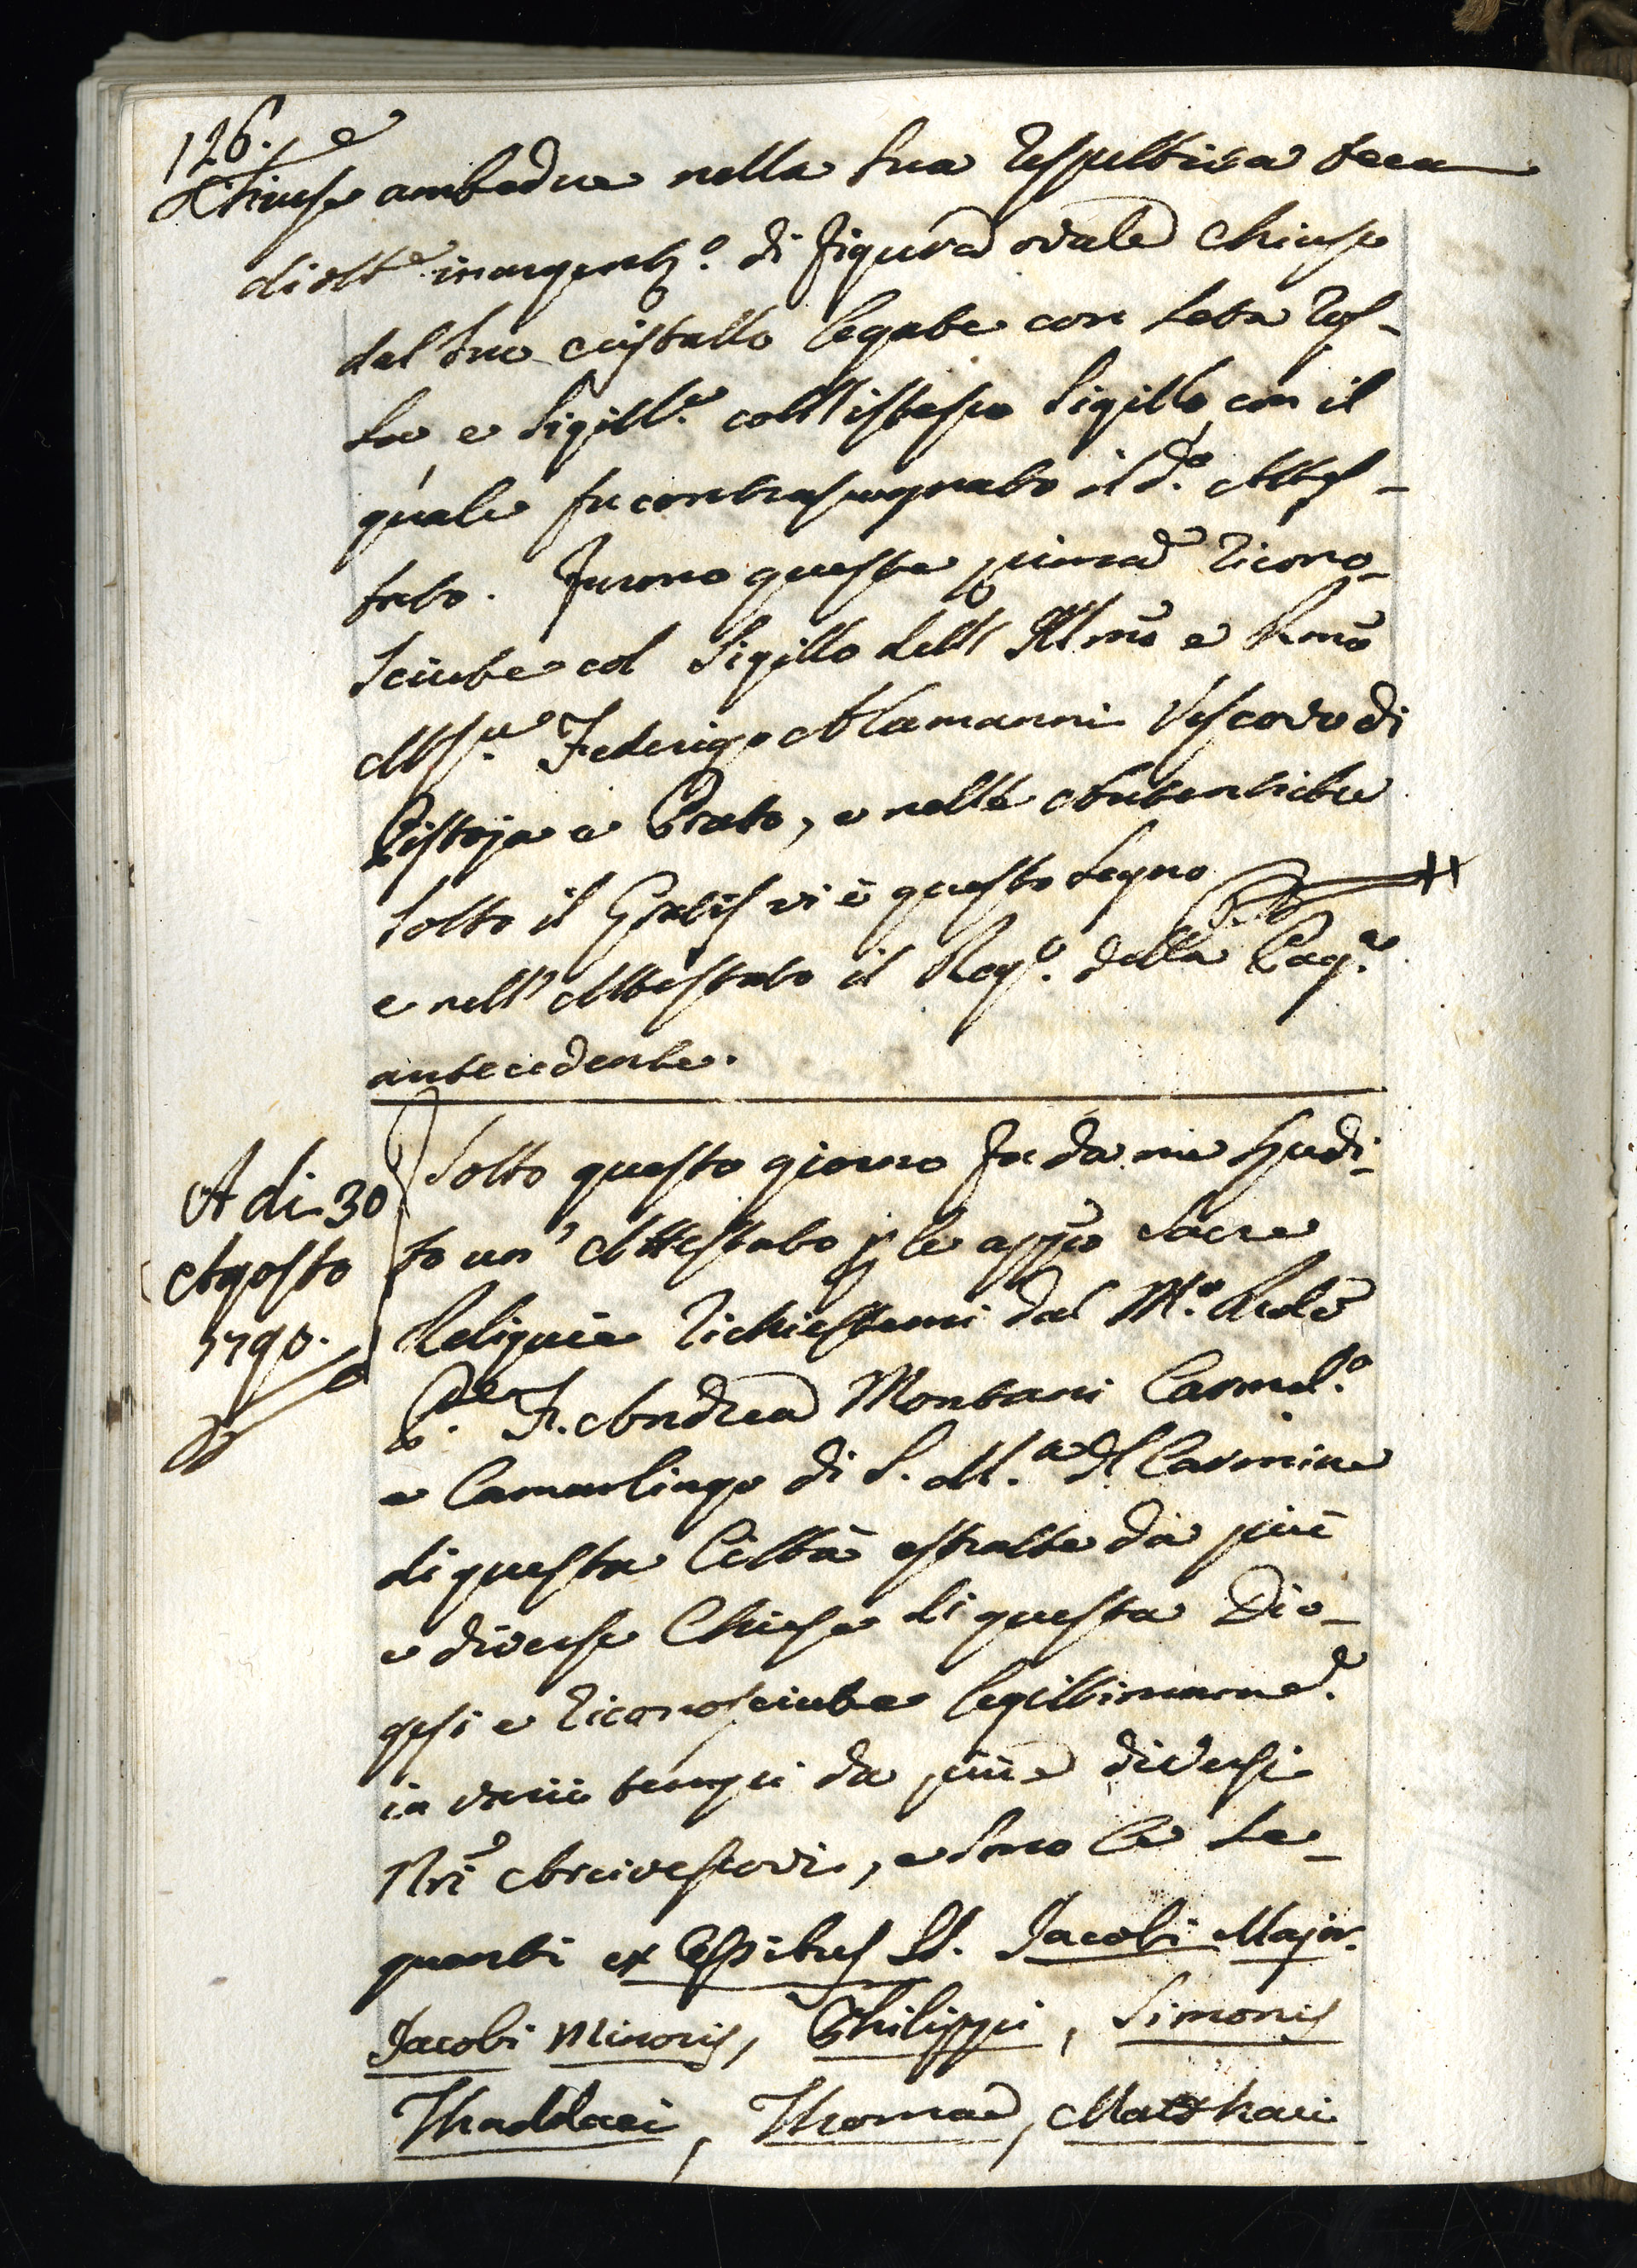 126.
Chiuse ambedue nella sua respettiva teca
di ott.e inargent.o di figura ovale chiuse
dal suo cristallo legate con seta ros-
sa e sigill.e coll'istesso sigillo con il
quale fu contrassegnato il d.o Attes-
tato. Furono queste prima ricono-
sciute col sigillo dell' Illmo e Rmo
Msr. Federigo Alamanni Vescovo di
Pistoja e Prato, e nelle Autentiche
sotto il Gratis vi è questo segno
e nell' Attestato il Reg.o della Pag.a
antecedente.
A di 30
Agosto
1790.
Sotto questo giorno fu da me spedi-
to un' Attestato p le appio sacre
Reliquie richiestemi dal M.o Rndo
P.de F. Andrea Montani Carmel.o
e Camarlingo di S. M.a del Carmine
di questa Città estratte da più
e diverse Chiese di questa Dio-
gesi e riconosciute legittimame.e
in varii tempi da più e diversi
Nri Arcivescovi, e sono le se-
guenti ex Ossibus SS. Jacobi Major.
Jacobi Minoris, Philippi, Simonis
Thaddaei, Thomae, Matthaei